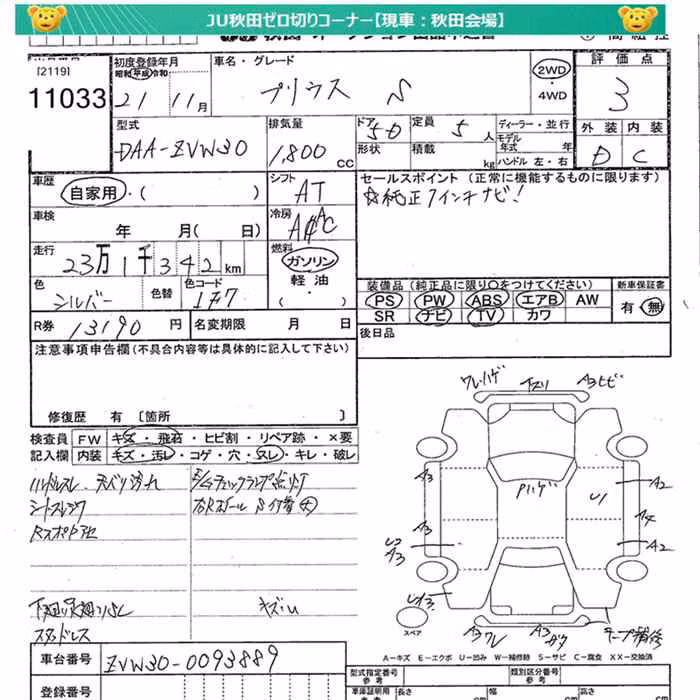 JU秋田ゼロ切りコーナー【現車：秋田会場】
[2119]
11033
初度登録年月
昭和 平成 令和
21 11月
車名・グレード
プリウス S
2WD
・
4WD
評価点
3
外装 内装
D C
型式
DAA-ZVW30
排気量
1,800 cc
ドア 5D
形状
定員 5人
積載 kg
ディーラー・並行
モデル年式 年
ハンドル 左・右
車歴
自家用・( )
シフト
AT
セールスポイント (正常に機能するものに限ります)
☆純正7インチナビ!
車検
年 月( 日)
冷房
AAC
走行
23万1千342km
燃料
ガソリン
軽油
・
色
シルバー
色替
色コード
1F7
装備品 (純正品に限り○をつけてください)
PS PW ABS エアB AW
SR ナビ TV カワ
新車保証書
有・無
R券 13190円
名変期限 月 日
後日品
注意事項申告欄 (不具合内容等は具体的に記入して下さい)
修復歴 有 [箇所 ]
検査員記入欄
FW キズ・飛石・ヒビ割・リペア跡・×要
内装 キズ・汚レ・コゲ・穴・スレ・キレ・破レ
ハンドルスレ
シートスレ
キズU
スタッドレス
ワレ ハゲ
下スリ
A3ヒビ
A3
Pハゲ
U1
A2
A3
A4
U2
A3
A2
UA3
スペア
A3ワレ
テープ補修
A－キズ E－エクボ U－凹み W－補修跡 S－サビ C－腐食 XX－交換済
車台番号
ZVW30-0093889
登録番号
型式指定番号
参考
類別区分番号
参考
車庫証明用
長さ cm
幅 cm
高さ cm